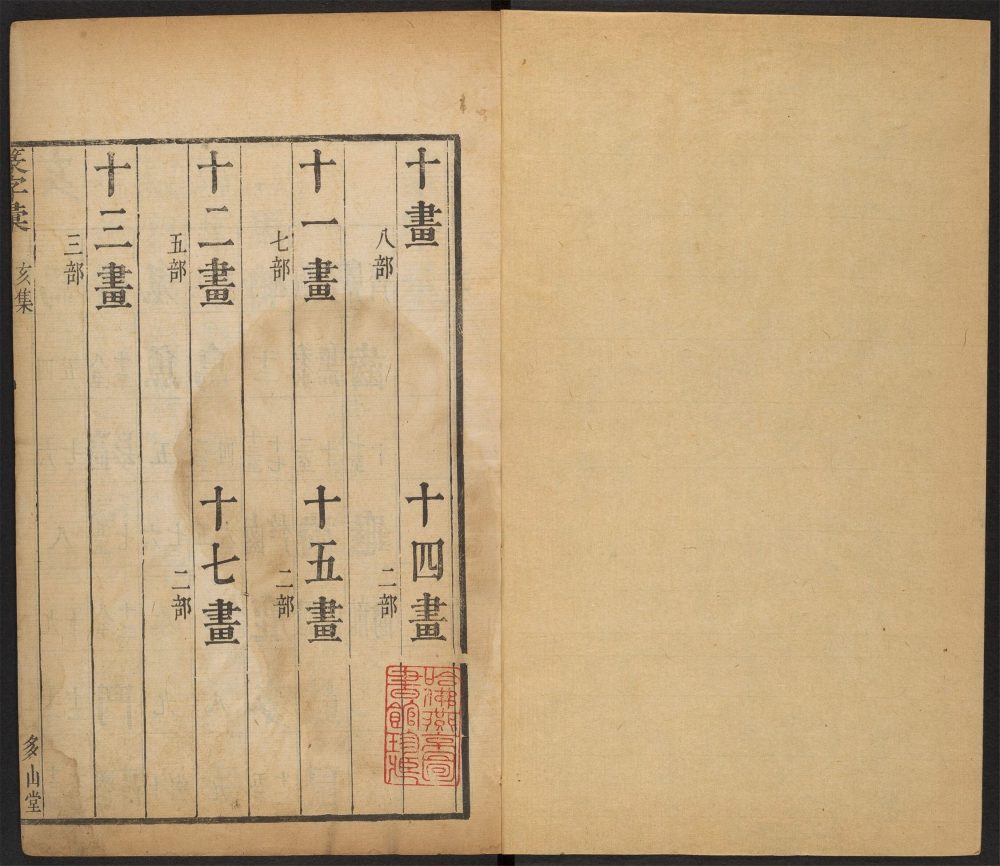 十畫
八部
十四畫
二部
十一畫
七部
十五畫
二部
十二畫
五部
十七畫
二部
十三畫
三部
篆字彙
亥集
多山堂
哈佛燕京圖
書館珍藏